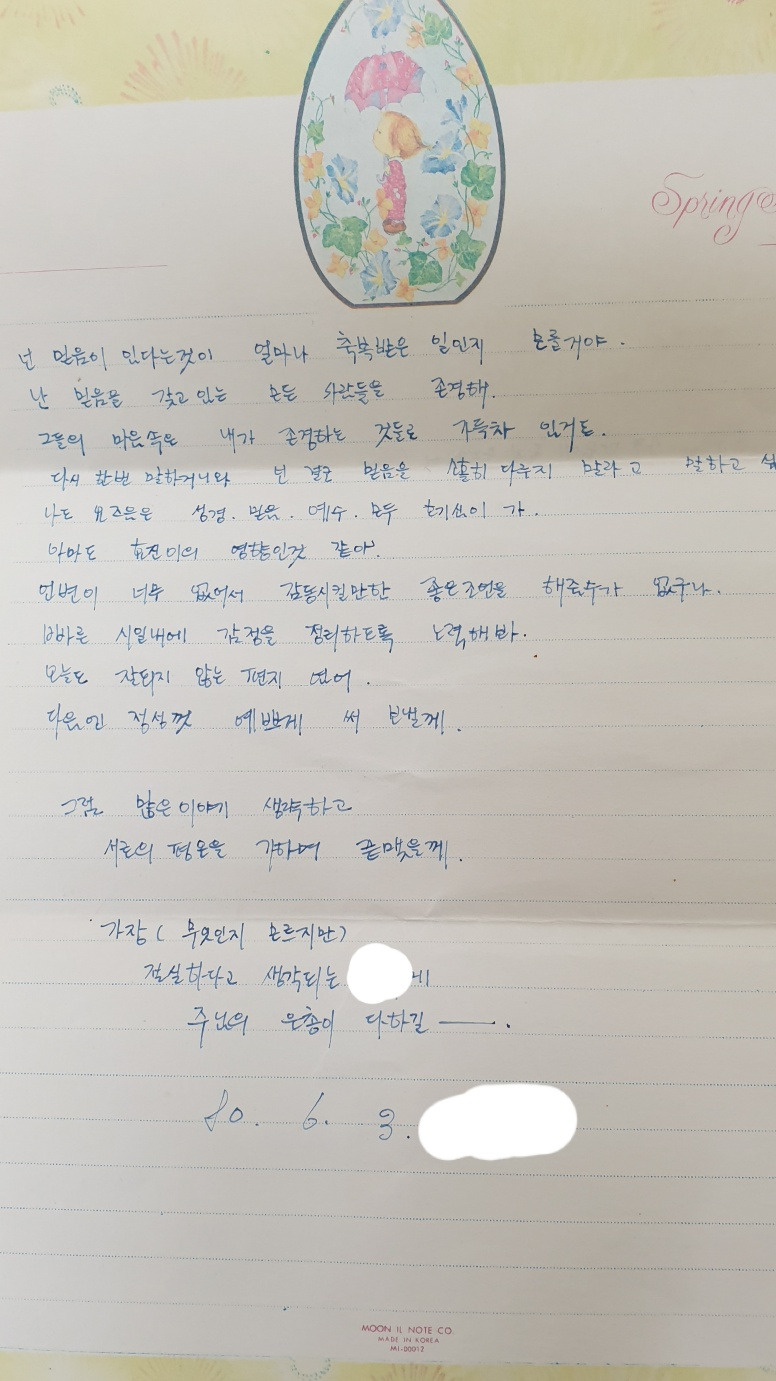 Spring
넌 믿음이 있다는것이 얼마나 축복받은 일인지 모를거야.
난 믿음을 갖고 있는 모든 사람들을 존경해.
그들의 마음속은 내가 존경하는 것들로 가득차 있거든.
다시 한번 말하거니와 넌 결코 믿음을 소홀히 다루지 말라고 말하고
나도 요즈음은 성경. 믿음. 예수. 모두 호기심이 가.
아마도 의 영향인것 같아.
언변이 너무 없어서 감동시킬만한 좋은 조언을 해줄수가 없구나.
빠른 시일내에 감정을 정리하도록 노력해봐.
오늘도 잘되지 않는 편지 였어.
다음엔 정성껏 예쁘게 써 보낼께.
그럼 많은 이야기 생략하고
서로의 평온을 끝맺을께.
가장 (무엇인지 모르지만)
절실하다고 생각되는 에
주님의 은총이 다하길 ㅡ.
80. 6. 3.
MOON IL NOTE CO.
MADE IN KOREA
MI-00012